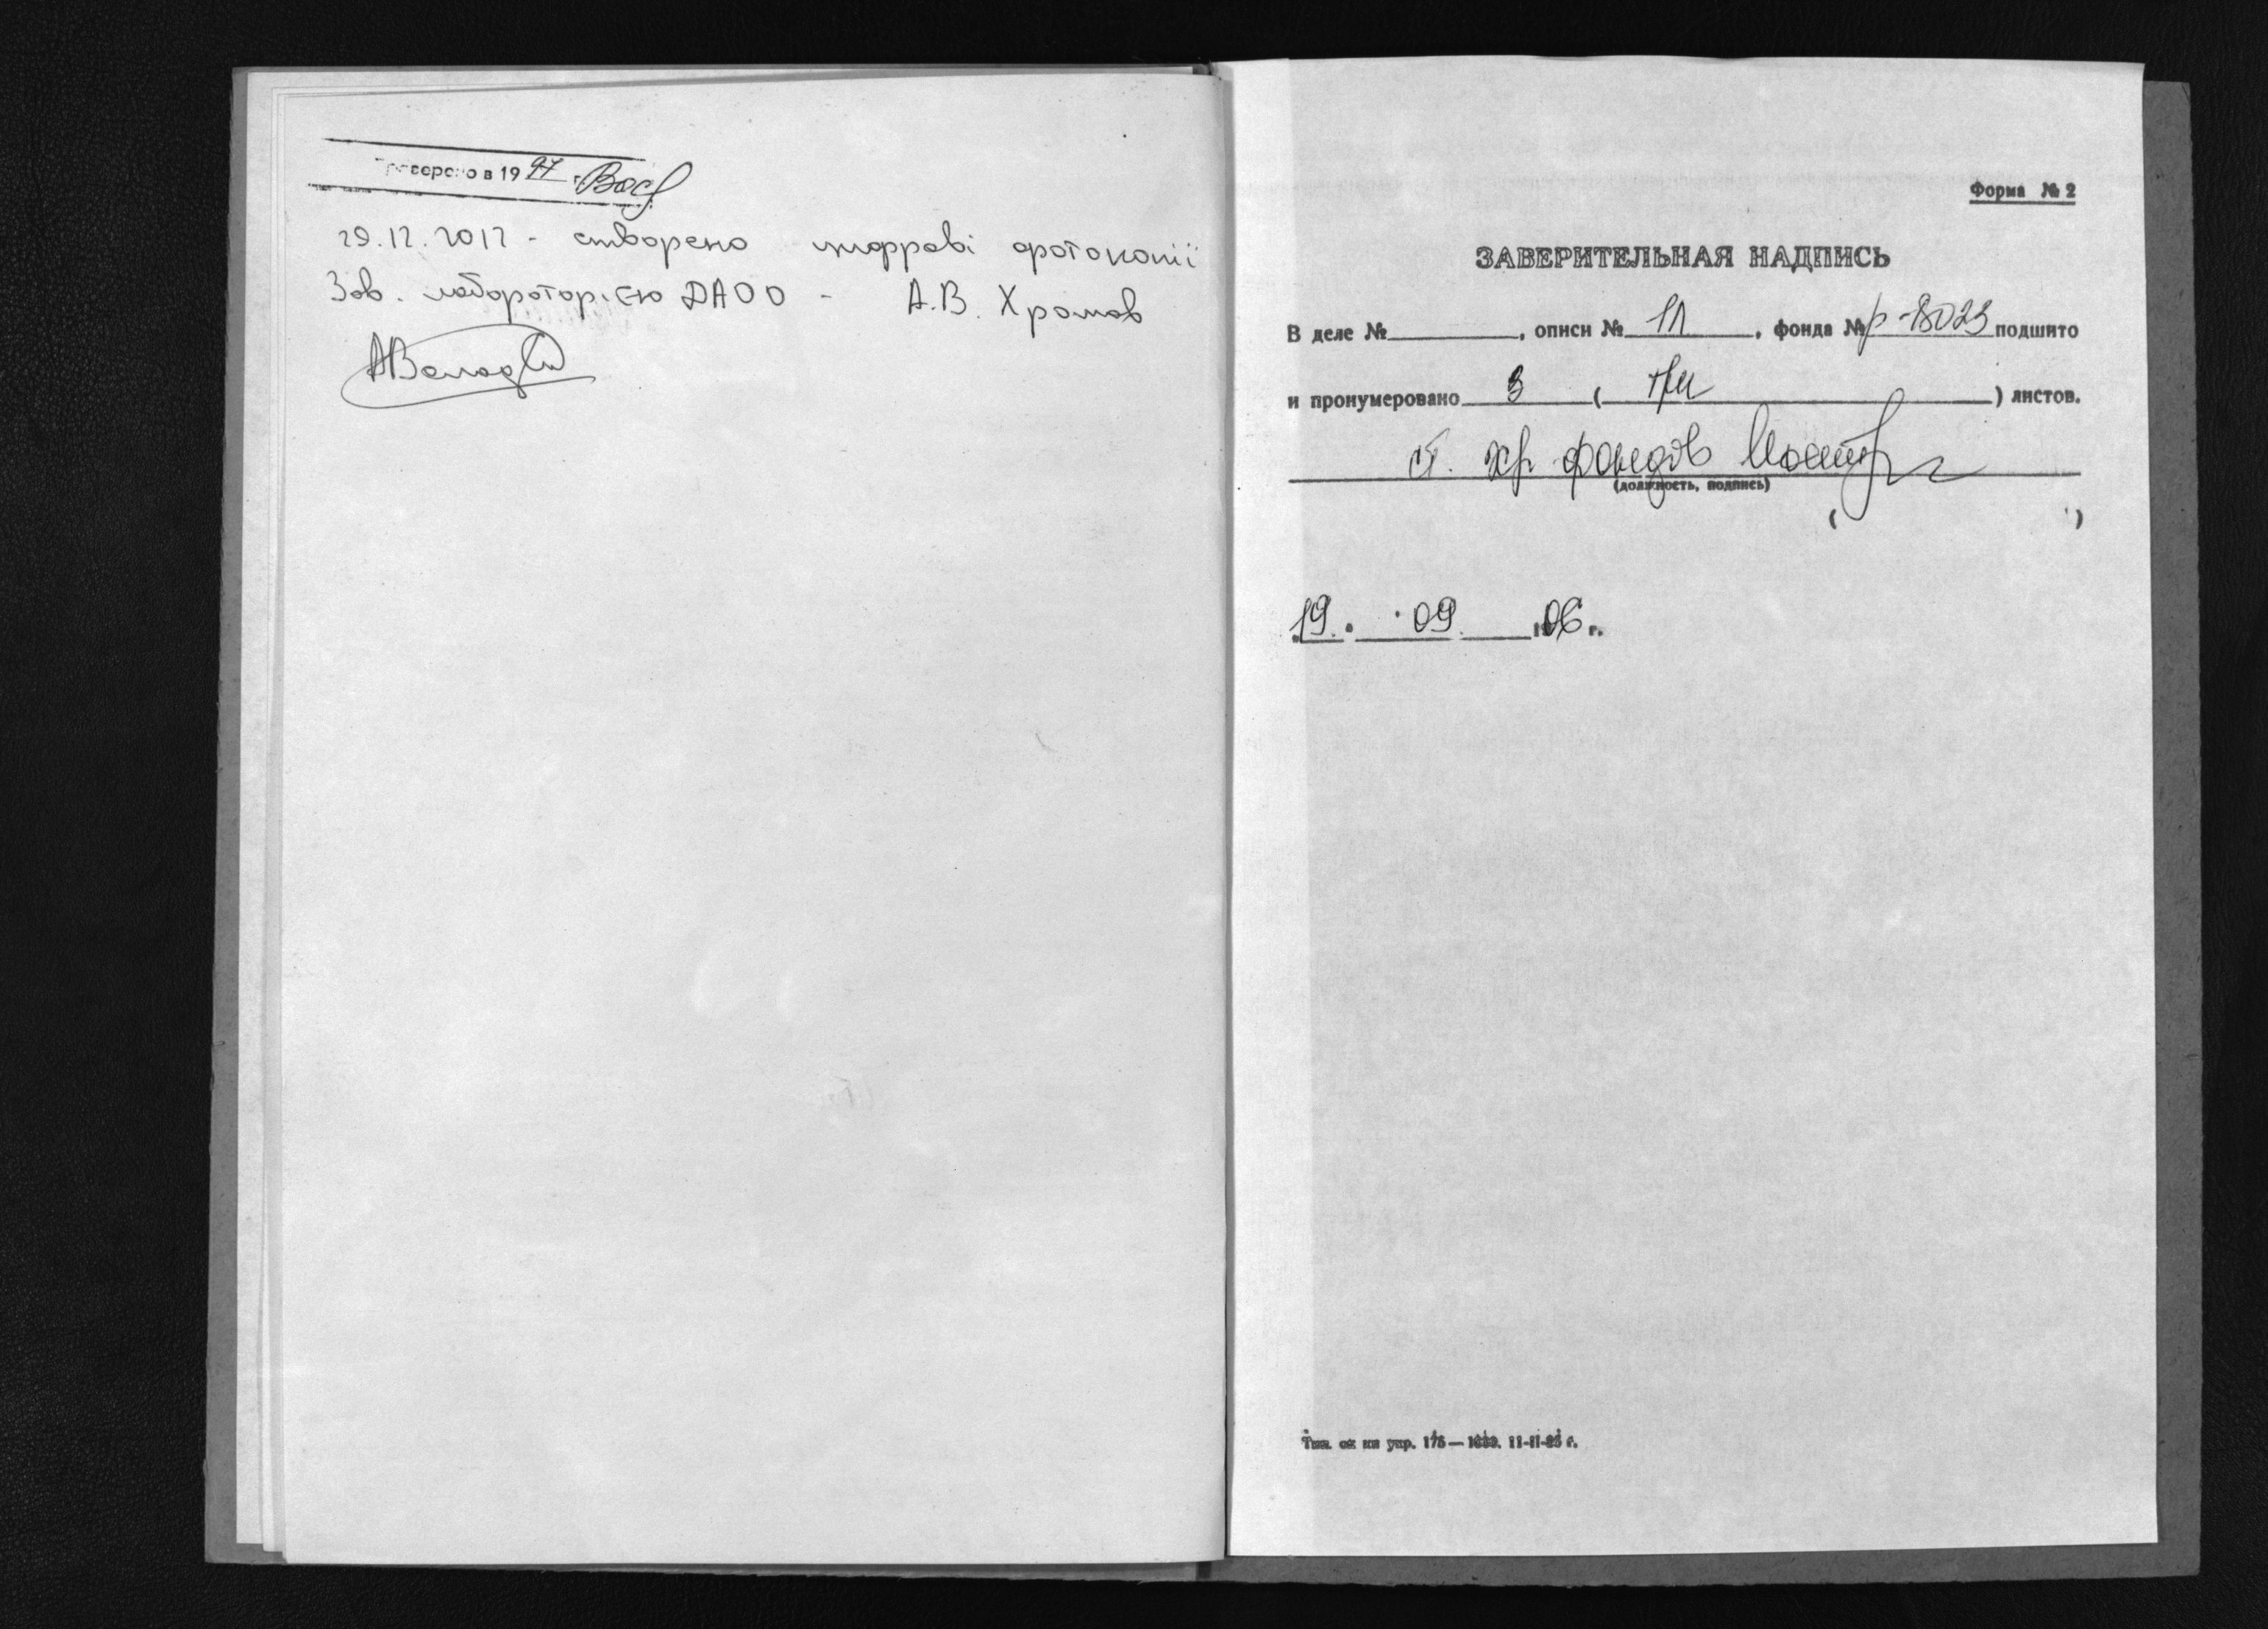 Проверено в 1997 г.
29.12.2012 - створено цифрові фотокопії
Зав. лабораторією ДАОО - А.В. Хромов
Форма № 2
ЗАВЕРИТЕЛЬНАЯ НАДПИСЬ
В деле № , описи № 1Л , фонда № р-8023 подшито
и пронумеровано 3 ( три ) листов.
ст. хр. фондов
(должность, подпись)
( )
19. 09 06 г.